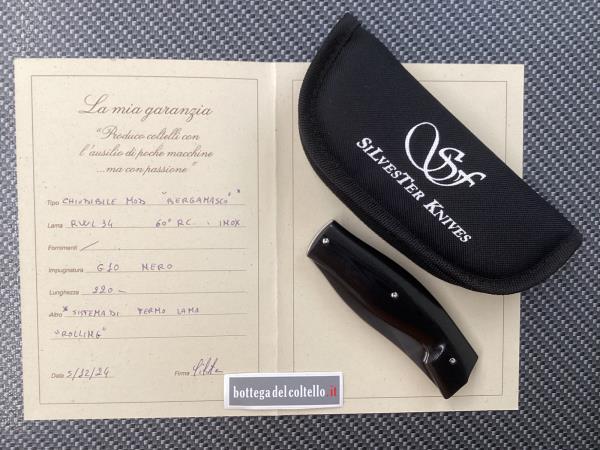 La mia garanzia
"Produco coltelli con
l'ausilio di poche macchine
...ma con passione"
Tipo CHIUDIBILE MOD "BERGAMASCO" *
Lama RWL 34 60° RC. INOX
Fornimenti /
Impugnatura G10 NERO
Lunghezza 220 -
Altro * SISTEMA DI FERMO LAMA
"ROLLING"
Data 5/12/24 Firma
bottegadelcoltello.it
Sf
SiLvesTer Knives